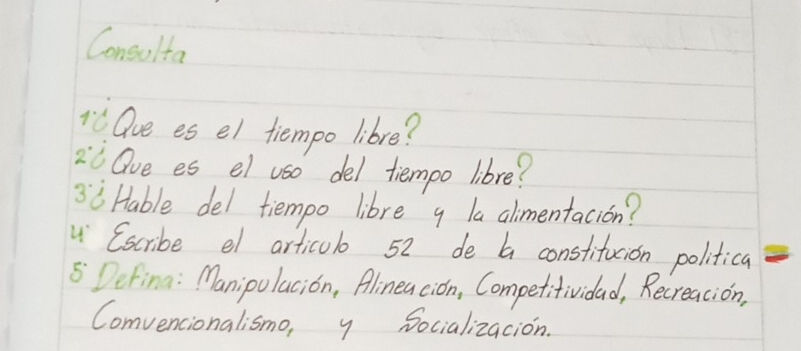 Consulta
1 ¿Que es el tiempo libre?
2 ¿Que es el uso del tiempo libre?
3 ¿Hable del tiempo libre y la alimentación?
4 Escribe el articulo 52 de la constitución politica
5 Defina: Manipulación, Alineación, Competitividad, Recreación,
Comvencionalismo, y Socialización.